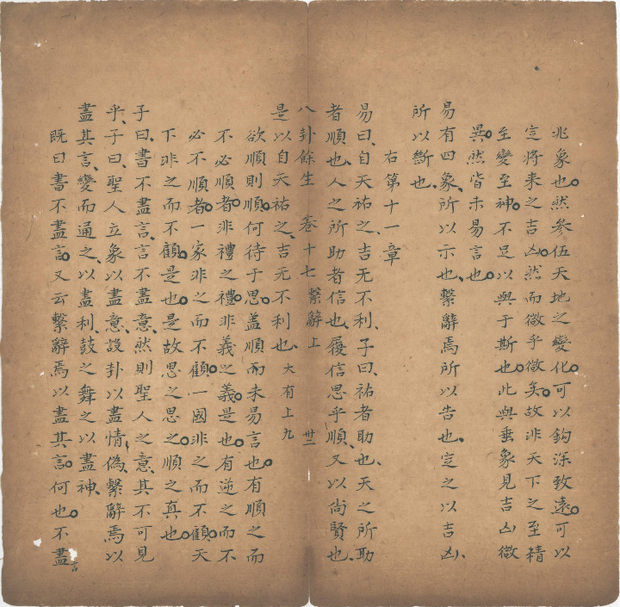 兆象也然參伍天地之變化可以鈎深致遠可以
定將來之吉凶然而微乎微矣故非天下之至精
至變至神不足以與于斯也此與垂象見吉凶微
異然皆未易言也
易有四象所以示也繫辭焉所以告也定之以吉凶
所以斷也
右第十一章
易曰自天祐之吉无不利子曰祐者助也天之所助
者順也人之所助者信也履信思乎順又以尚賢也
八卦餘生 卷十七 繫辭上 卅二
是以自天祐之吉无不利也 大有上九
欲順則順何待于思蓋順而未易言也有順之而
不必順者非禮之禮非義之義是也有逆之而不
必不順者一家非之而不顧一國非之而不顧天
下非之而不顧是也是故思之思之順之真也
子曰書不盡言言不盡意然則聖人之意其不可見
乎子曰聖人立象以盡意設卦以盡情偽繫辭焉以
盡其言變而通之以盡利鼓之舞之以盡神
既曰書不盡言又云繫辭焉以盡其言何也不盡
言